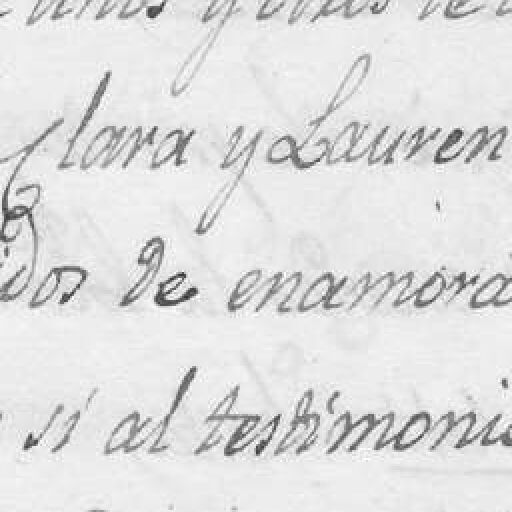 Clara y Lauren
idos de enamora
si al testimonio